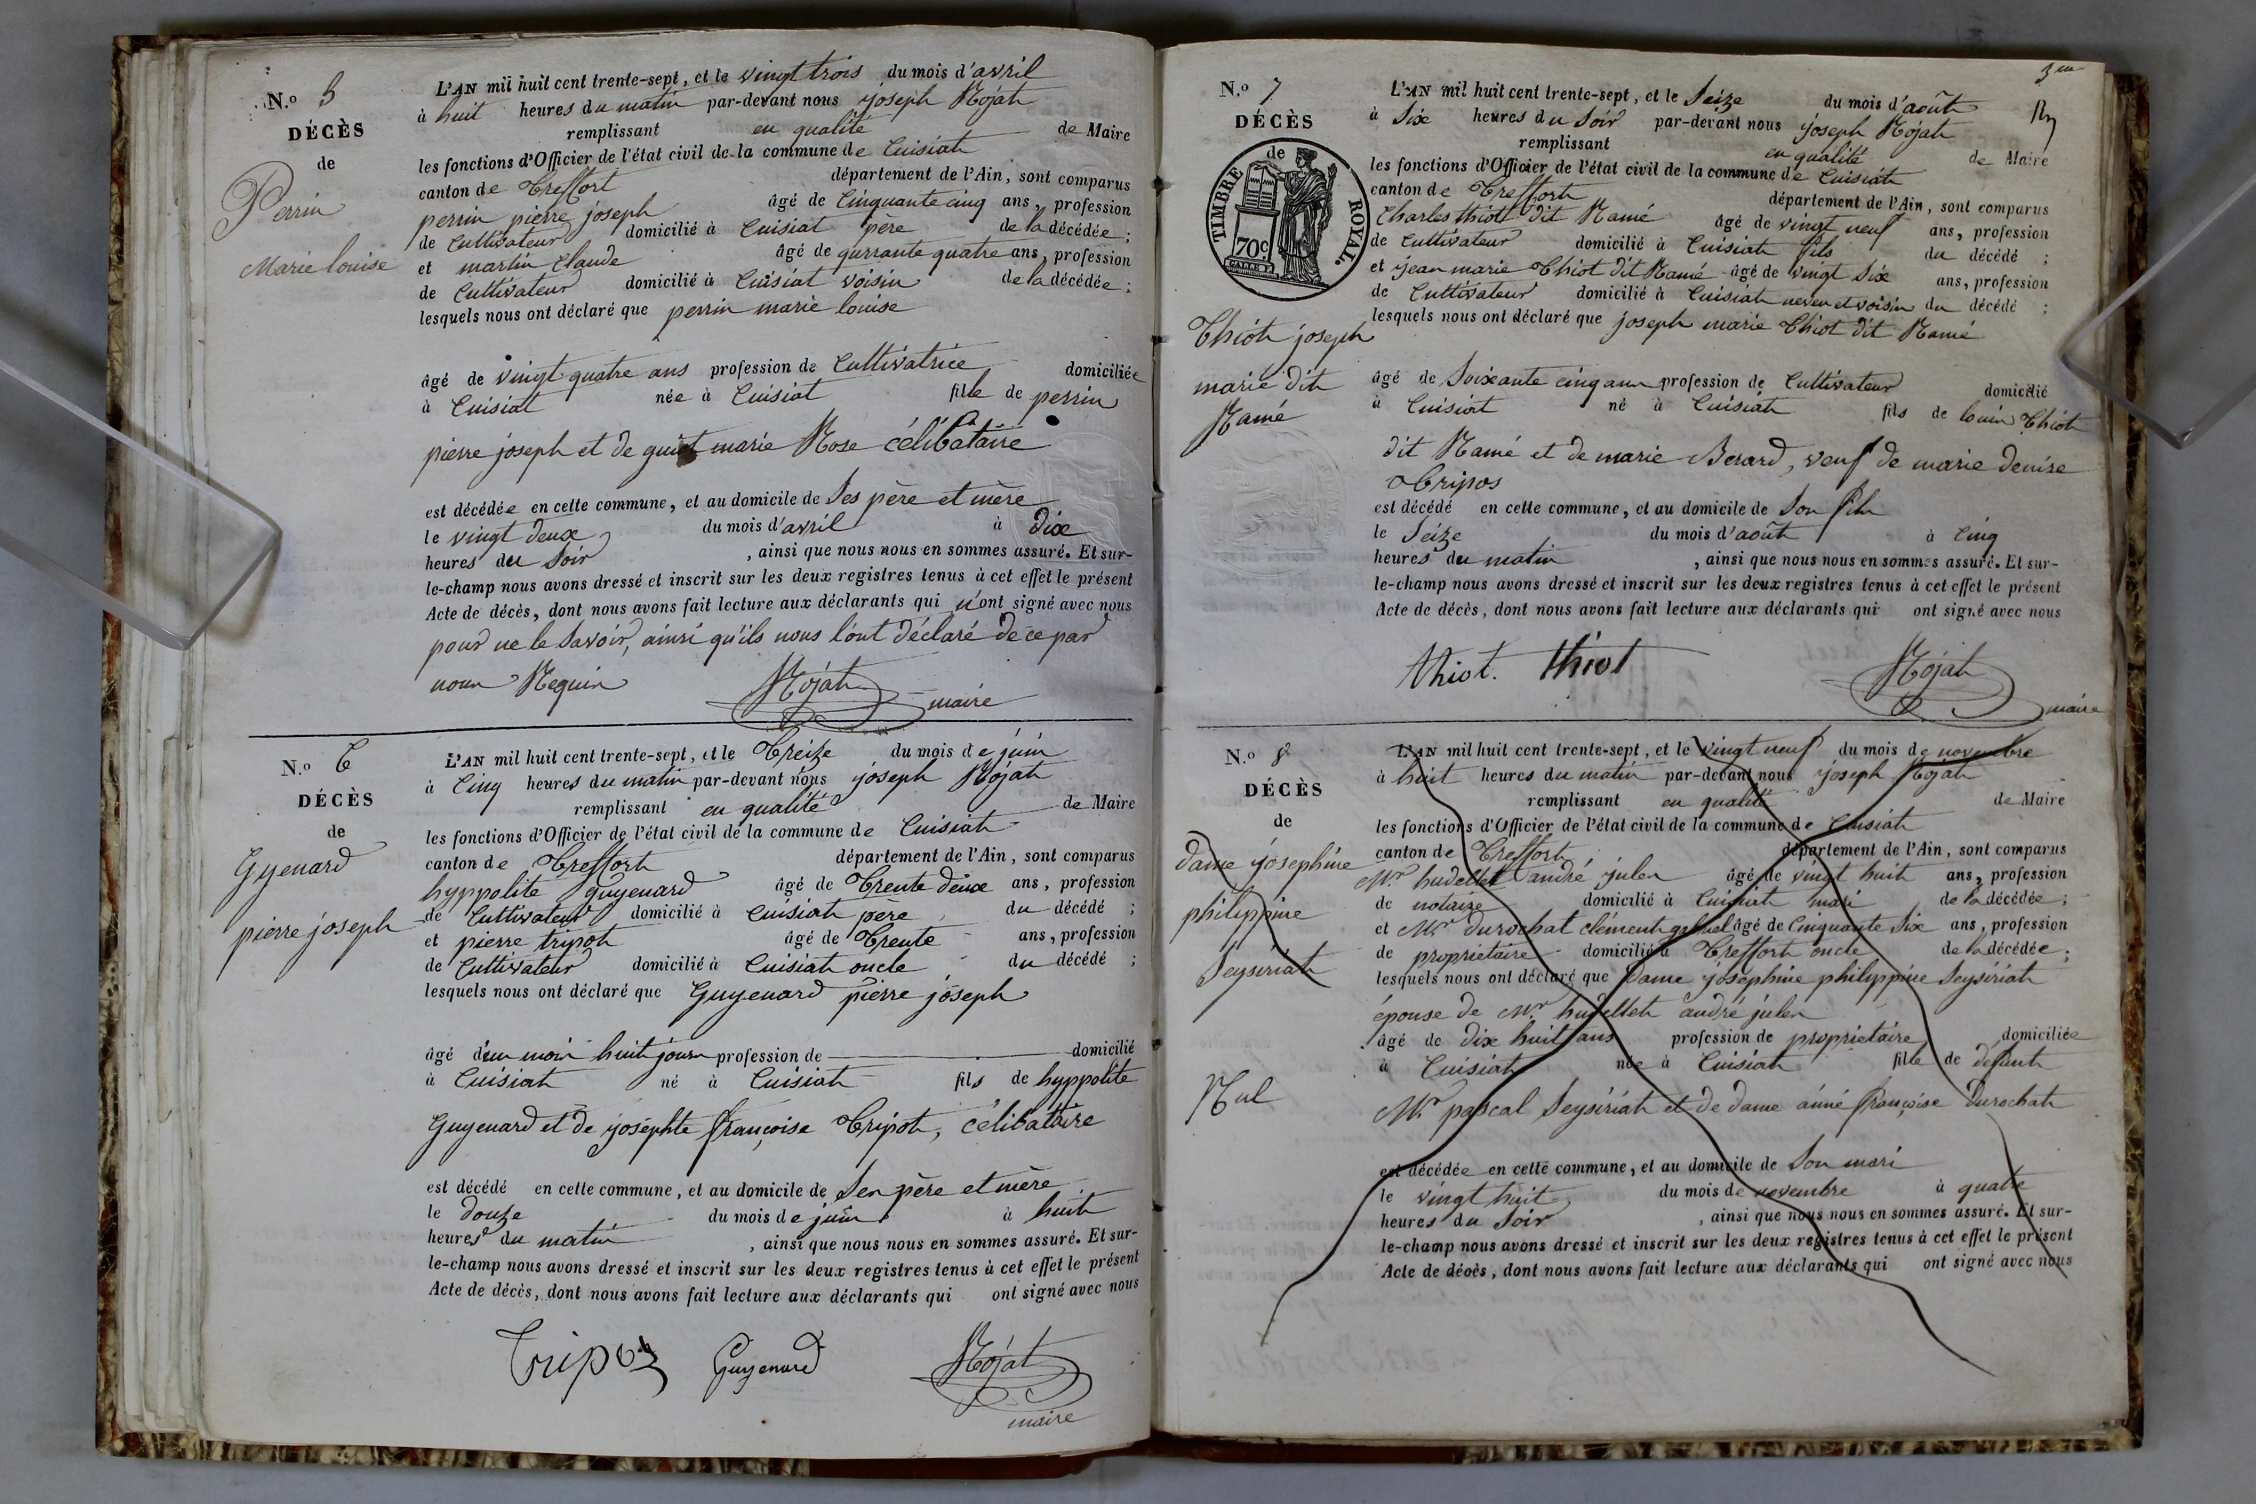 N.º 5
DÉCÈS
de
Perrin
Marie louise
L'AN mil huit cent trente-sept, et le vingt trois du mois d'avril
à huit heures du matin par-devant nous joseph Rojat
remplissant en qualité de Maire
les fonctions d'Officier de l'état civil de la commune de Cuisiat
canton de Treffort département de l'Ain, sont comparus
perrin pierre joseph âgé de Cinquante cinq ans, profession
de Cultivateur domicilié à Cuisiat père de la décédée;
et martin Claude âgé de qurrante quatre ans, profession
de Cultivateur domicilié à Cuisiat voisin de la décédée;
lesquels nous ont déclaré que perrin marie louise
âgé de vingt quatre ans profession de Cultivatrice domiciliée
à Cuisiat née à Cuisiat fille de perrin
pierre joseph et de guiot marie Rose célibataire
est décédée en cette commune, et au domicile de Ses père et mère
le vingt deux du mois d'avril à Dix
heures du Soir, ainsi que nous nous en sommes assuré. Et sur-
le-champ nous avons dressé et inscrit sur les deux registres tenus à cet effet le présent
Acte de décès, dont nous avons fait lecture aux déclarants qui n'ont signé avec nous
pour ne le Savoir, ainsi qu'ils nous l'ont déclaré de ce par
nous Requis
Rojat
maire
N.º 6
DÉCÈS
de
Gyenard
pierre joseph
L'AN mil huit cent trente-sept, et le Treize du mois de juin
à Cinq heures du matin par-devant nous joseph Rojat
remplissant en qualité de Maire
les fonctions d'Officier de l'état civil de la commune de Cuisiat
canton de Treffort département de l'Ain, sont comparus
hyppolite Guyenard âgé de Trente deux ans, profession
de Cultivateur domicilié à Cuisiat père du décédé;
et pierre tripot âgé de Trente ans, profession
de Cultivateur domicilié à Cuisiat oncle du décédé;
lesquels nous ont déclaré que Guyenard pierre joseph
âgé d'un mois huit jours profession de domicilié
à Cuisiat né à Cuisiat fils de hyppolite
Guyenard et de josephte françoise Tripot, célibataire
est décédé en cette commune, et au domicile de Ses père et mère
le douze du mois de juin à huit
heures du matin, ainsi que nous nous en sommes assuré. Et sur-
le-champ nous avons dressé et inscrit sur les deux registres tenus à cet effet le présent
Acte de décès, dont nous avons fait lecture aux déclarants qui ont signé avec nous
Tripot Guyenard Rojat
maire
3me
N.º 7
DÉCÈS
de
TIMBRE ROYAL.
70c.
Thiot joseph
marie dit
Ramé
L'AN mil huit cent trente-sept, et le Seize du mois d'août
à Six heures du Soir par-devant nous joseph Rojat
remplissant en qualité de Maire
les fonctions d'Officier de l'état civil de la commune de Cuisiat
canton de Treffort département de l'Ain, sont comparus
Charles thiot dit Ramé âgé de vingt neuf ans, profession
de Cultivateur domicilié à Cuisiat fils du décédé;
et jean marie Thiot dit Ramé âgé de vingt Six ans, profession
de Cultivateur domicilié à Cuisiat neveu et voisin du décédé;
lesquels nous ont déclaré que joseph marie Thiot dit Ramé
âgé de Soixante cinq ans profession de Cultivateur domicilié
à Cuisiat né à Cuisiat fils de louis Thiot
dit Ramé et de marie Berard, veuf de marie denise
Tripos
est décédé en cette commune, et au domicile de Son fils
le Seize du mois d'août à Cinq
heures du matin, ainsi que nous nous en sommes assuré. Et sur-
le-champ nous avons dressé et inscrit sur les deux registres tenus à cet effet le présent
Acte de décès, dont nous avons fait lecture aux déclarants qui ont signé avec nous
thiot. thiot Rojat
maire
N.º 8
DÉCÈS
de
Dame josephine
philippine
Seysiriat
Nul
L'AN mil huit cent trente-sept, et le vingt neuf du mois de novembre
à huit heures du matin par-devant nous joseph Rojat
remplissant en qualité de Maire
les fonctions d'Officier de l'état civil de la commune de Cuisiat
canton de Treffort département de l'Ain, sont comparus
Mr. hudellet andré jules âgé de vingt huit ans, profession
de notaire domicilié à Cuisiat mari de la décédée;
et Mr. Durochat clément âgé de Cinquante Six ans, profession
de propriétaire domicilié à Treffort oncle de la décédée;
lesquels nous ont déclaré que Dame joséphine philippine Seysiriat
épouse de Mr. hudellet andré jules
âgé de dix huit ans profession de propriétaire domiciliée
à Cuisiat née à Cuisiat fille de défunt
Mr. pascal Seysiriat et de dame aimé françoise Durochat
est décédée en cette commune, et au domicile de Son mari
le vingt huit du mois de novembre à quatre
heures du Soir, ainsi que nous nous en sommes assuré. Et sur-
le-champ nous avons dressé et inscrit sur les deux registres tenus à cet effet le présent
Acte de décès, dont nous avons fait lecture aux déclarants qui ont signé avec nous